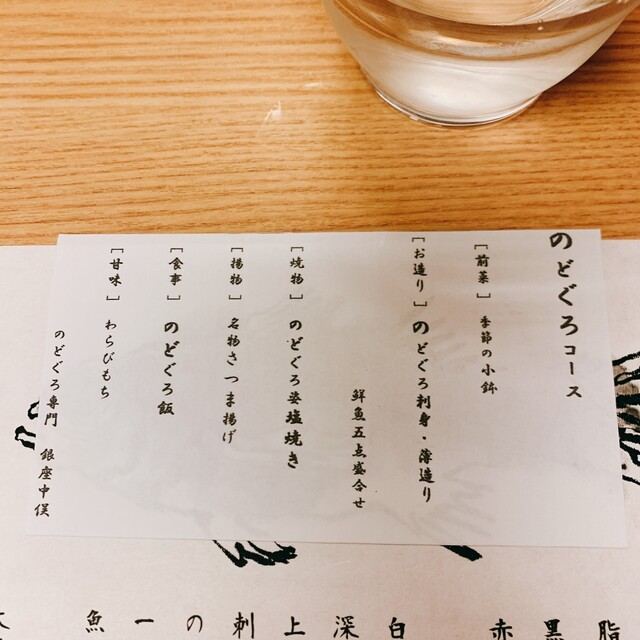 のどぐろコース
[前菜] 季節の小鉢
[お造り] のどぐろ刺身・薄造り
鮮魚五点盛合せ
[焼物] のどぐろ姿塩焼き
[揚物] 名物さつま揚げ
[食事] のどぐろ飯
[甘味] わらびもち
のどぐろ専門 銀座中俣
脂
黒
赤
白
深
上
刺
の
一
魚